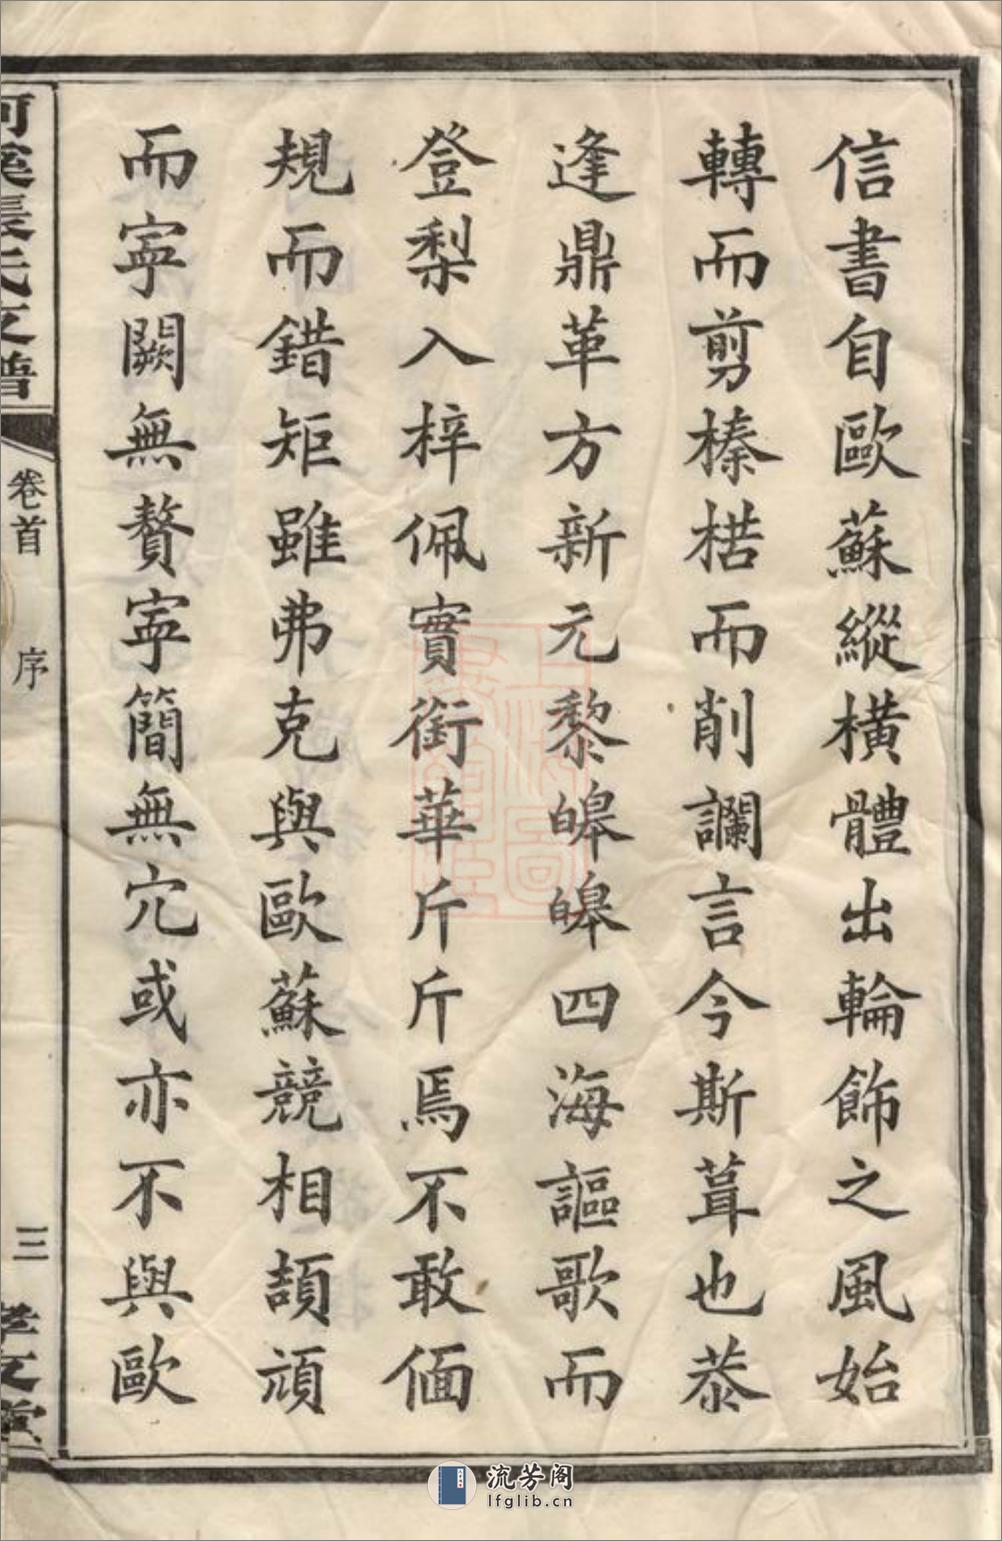 信書自歐蘇縱橫體出輪飾之風始
轉而剪榛楛而削讕言今斯葺也恭
逢鼎革方新元黎皞皞四海謳歌而
登梨入梓佩實銜華斤斤焉不敢偭
規而錯矩雖弗克與歐蘇競相頡頏
而寕闕無贅寕簡無宂或亦不與歐
張氏支譜
卷首
序
三
孝友堂
流芳阁
lfglib.cn